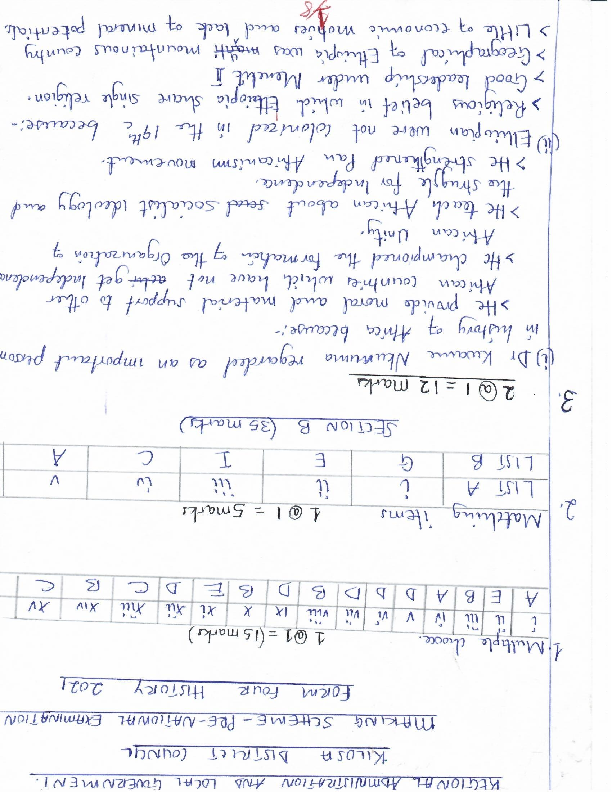 REGIONAL ADMINISTRATION AND LOCAL GOVERNMENT.
KILOSA DISTRICT COUNCIL
MAKING SCHEME - PRE-NATIONAL EXAMINATION
FORM FOUR HISTORY 2021
1. Multiple choice. 1@1 = (15 marks)
i ii iii iv v vi vii viii ix x xi xii xiii xiv xv
A E B A D D D B D B E D C B C
2. Matching items 1@1 = 5marks
LIST A i ii iii iv v
LIST B G E I C A
SECTION B (35 marks)
3. 2@1 = 12 marks
(i) Dr Kwame Nkrumma regarded as an important person
in history of Africa because:-
> He provide moral and material support to other
African countries which have not get Independence
> He championed the formation of the Organization of
African Unity.
> He teach African about Socialist ideology and
the struggle for Independence.
> He strengthened Pan Africanism movement.
(ii) Ethiopian were not colonized in the 19thc because:-
> Religious belief in which Ethiopia share single religion.
> Good leadership under Menelik II
> Geographical of Ethiopia was mountainous country
> Little of economic motives and lack of mineral potentials